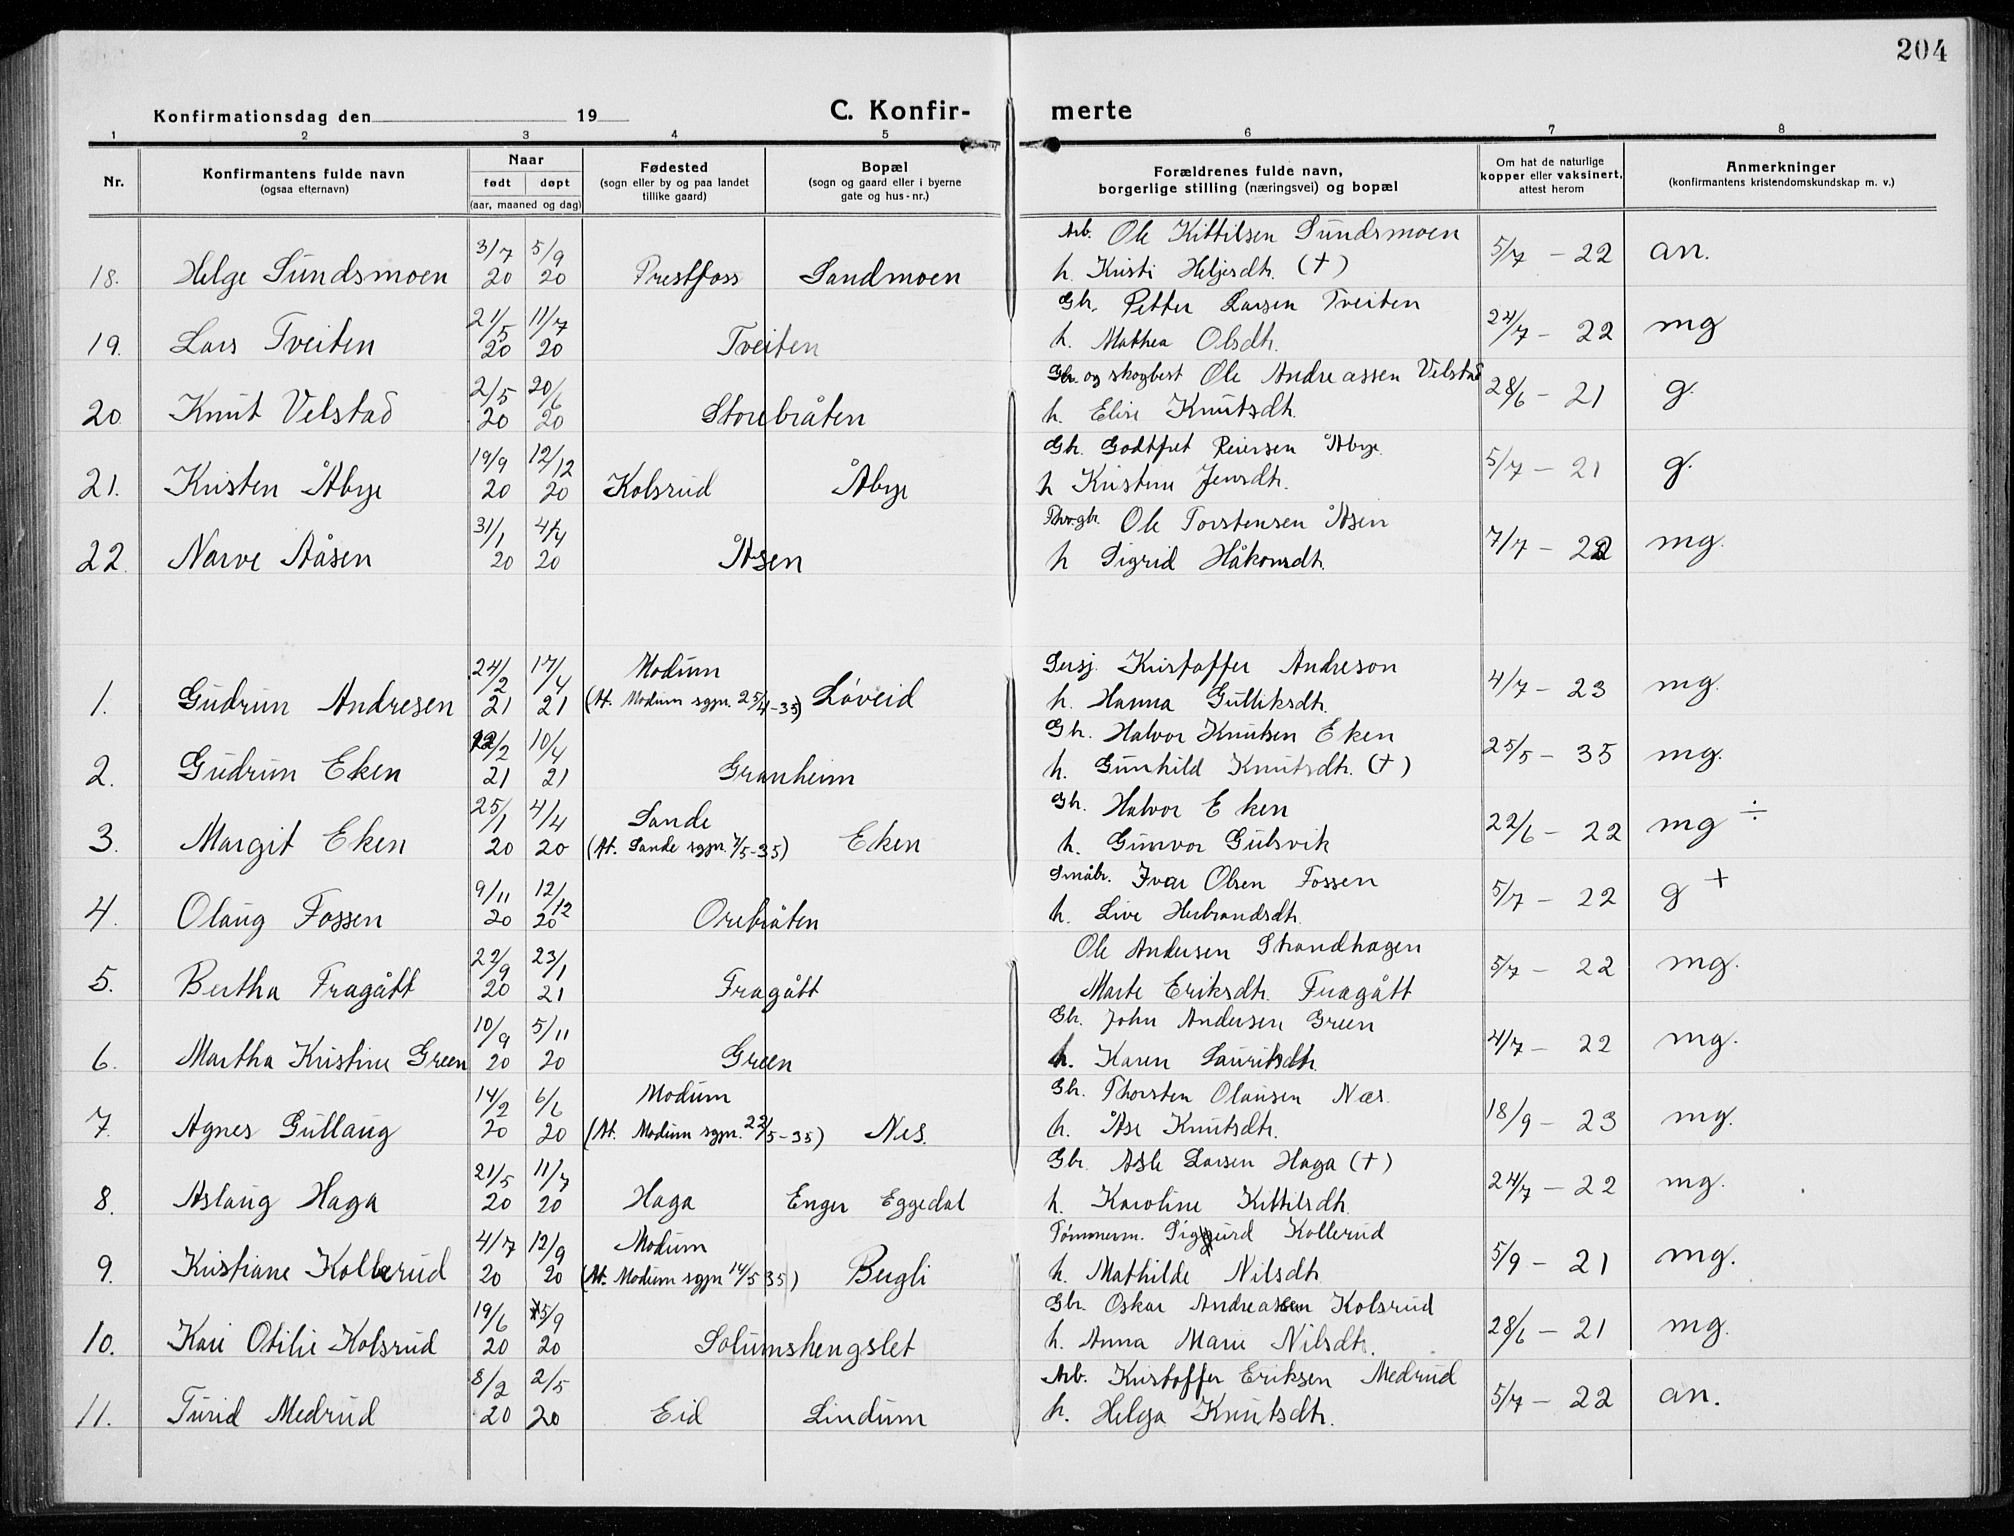 204
Konfirmationsdag den 19 C. Konfir- merte
1 2 3 4 5 6 7 8
Nr.
Konfirmantens fulde navn
(ogsaa efternavn)
Naar
født døpt
(aar, maaned og dag)
Fødested
(sogn eller by og paa landet
tillike gaard)
Bopæl
(sogn og gaard eller i byerne
gate og hus-nr.)
Forældrenes fulde navn,
borgerlige stilling (næringsvei) og bopæl
Om hat de naturlige
kopper eller vaksinert,
attest herom
Anmerkninger
(konfirmantens kristendomskundskap m. v.)
3/7 5/9 Arb. Ole Kittilsen Sundsmoen
18. Helge Sundsmoen 20 20 Prestfoss Sandmoen h. Kristi Heljesdtr. (†) 5/7 - 22 an.
21/5 11/7 Gbr. Petter Larsen Tveiten
19. Lars Tveiten 20 20 Tveiten h. Mathea Olsdtr. 24/7 - 22 mg
2/5 20/6 Gbr. og skogbest Ole Andreassen Velstad
20 Knut Velstad 20 20 Storebråten h. Elise Knutsdtr. 28/6 - 21 g.
19/9 12/12 Gbr. Godtfret Reiersen Åbye.
21. Kristen Åbye 20 20 Kolsrud Åbye h Kristine Jensdtr. 5/7 - 21 g.
31/1 4/4 Ole Torstensen Åsen
22. Narve Aåsen 20 20 Åsen h Sigrid Håkonsdtr. 7/7 - 22 mg.
24/2 17/4 Modum Sersj. Kristoffer Andreson
1. Gudrun Andresen 21 21 (At. Modum sgpr. 25/4-35) Løveid h. Hanna Gulliksdtr. 4/7 - 23 mg.
22/2 10/4 Gbr. Halvor Knutsen Eken
2. Gudrun Eken 21 21 Granheim h. Gunhild Knutsdtr. (†) 25/5 - 35 mg.
25/1 4/4 Sande Gbr. Halvor Eken
3. Margit Eken 20 20 (At. Sande sgpr. 7/5-35) Eken h. Gunvor Gulsvik 22/6 - 22 mg ÷
9/11 12/12 Småbr. Ivar Olsen Fossen
4. Olaug Fossen 20 20 Orebråten h. Live Herbrandsdtr. 5/7 - 22 g +
22/9 23/1 Ole Andersen Strandhagen
5. Bertha Fragått 20 21 Fragått Marte Eriksdtr. Fragått 5/7 - 22 mg.
10/9 5/11 Gbr. John Andersen Green
6. Martha Kristine Green 20 20 Green h. Karen Lauritsdtr. 4/7 - 22 mg.
14/2 6/6 Modum Gbr. Thorsten Olausen Nær.
7. Agnes Gullaug 20 20 (At. Modum sgpr. 22/5-35) Nes. h. Åse Knutsdtr. 18/9 - 23 mg.
21/5 11/7 Gbr. Asle Larsen Haga (†)
8. Aslaug Haga 20 20 Haga Enger Eggedal h. Karoline Kittilsdtr. 24/7 - 22 mg.
4/7 12/9 Modum Tømmerm. Sigurd Kollerud
9. Kristiane Kollerud 20 20 (At. Modum sgpr 14/5 35) Bugli h. Mathilde Nilsdtr. 5/9 - 21 mg.
19/6 5/9 Gbr. Oskar Andreassen Kolsrud
10. Kari Otilie Kolsrud 20 20 Solumshengslet h. Anna Marie Nilsdtr. 28/6 - 21 mg.
8/2 2/5 Arb. Kristoffer Eriksen Medrud
11. Turid Medrud 20 20 Eid Lindum h. Helga Knutsdtr. 5/7 - 22 an.